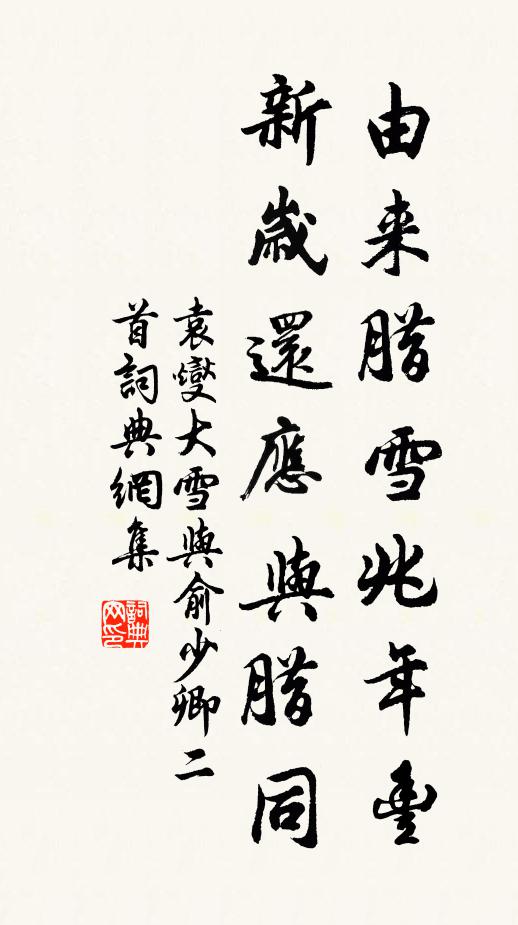 由来腊雪兆年豐
新歳還應與腊同
袁燮大雪與俞少卿二
首詞典網集
詞典网印